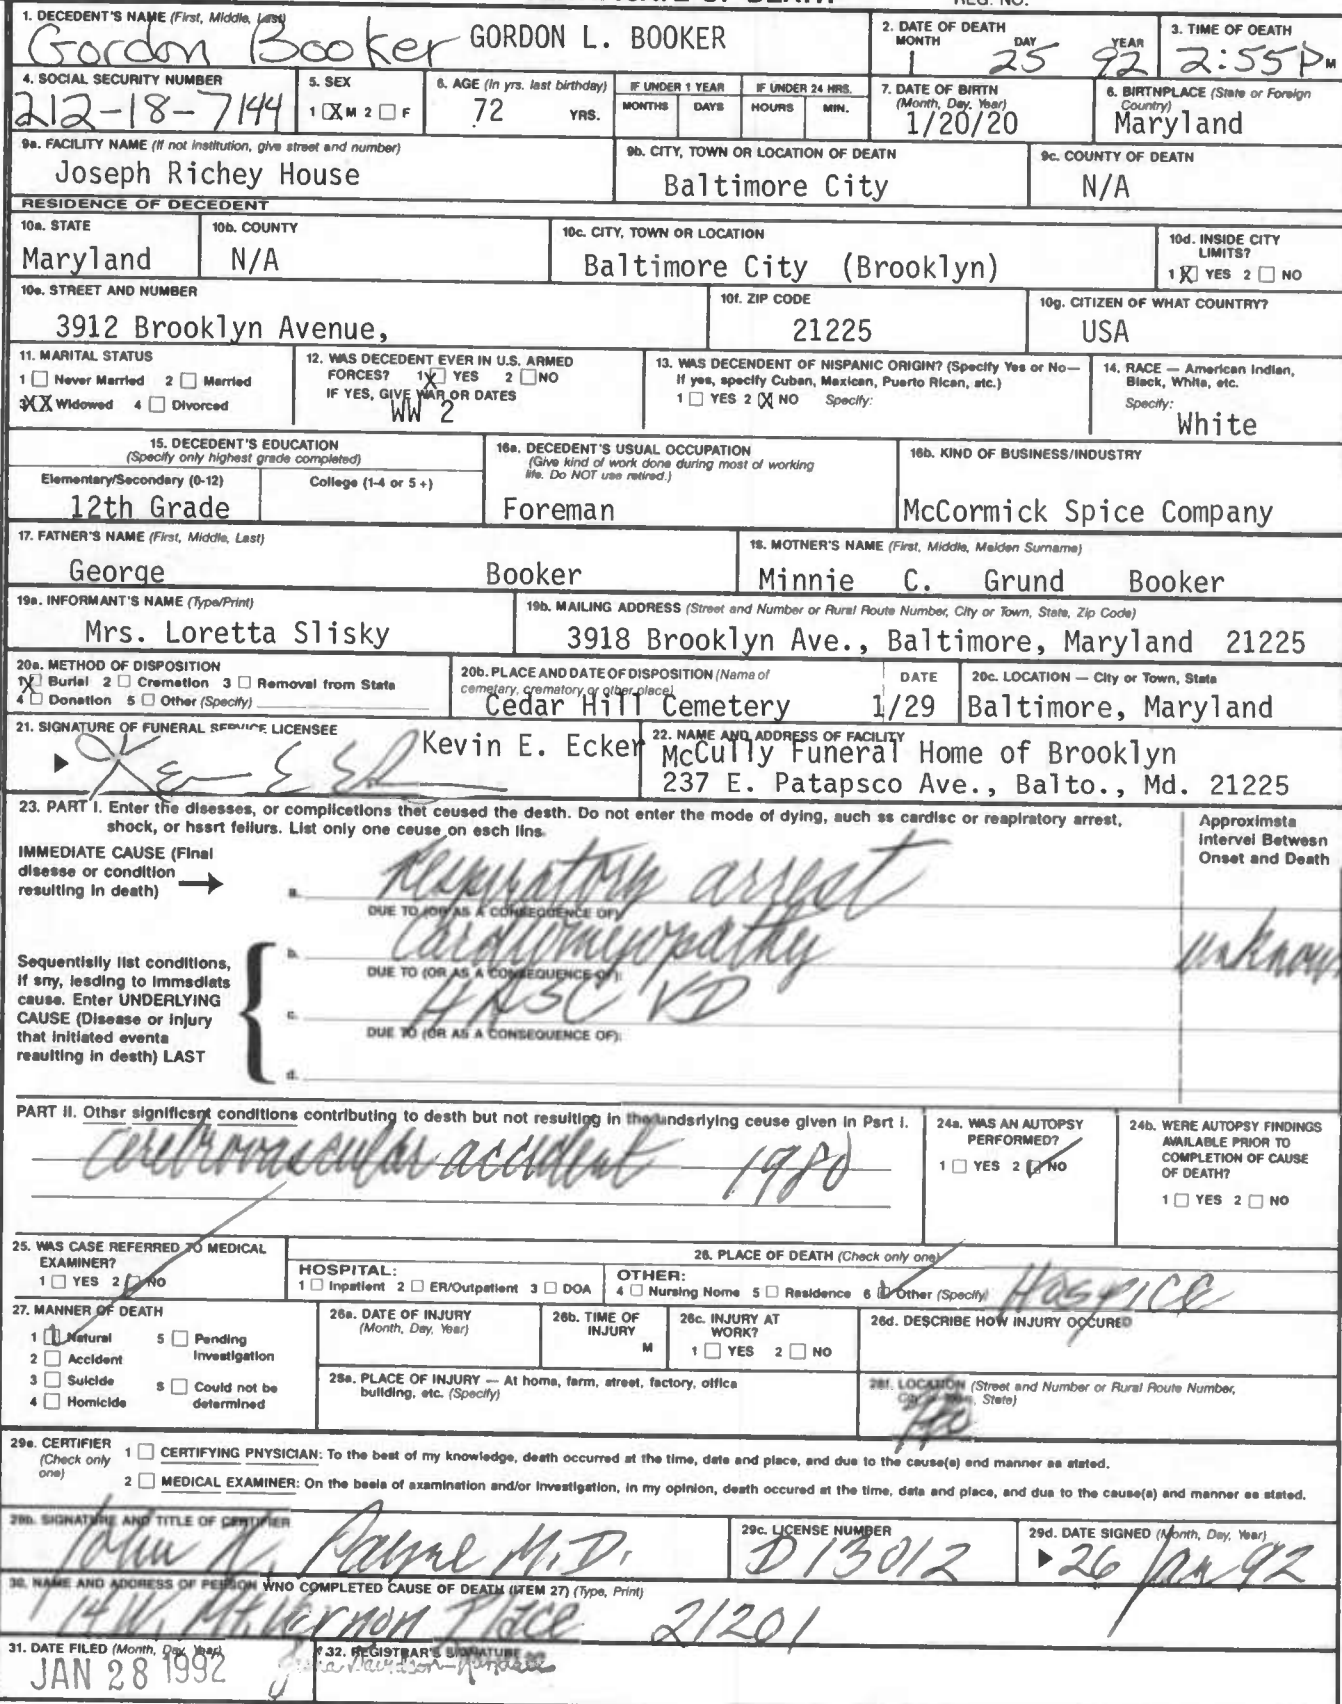 REG. NO.
1. DECEDENT'S NAME (First, Middle, Last)
Gordon Booker GORDON L. BOOKER
2. DATE OF DEATH
MONTH DAY YEAR
1 25 92
3. TIME OF OEATH
2:55 P M
4. SOCIAL SECURITY NUMBER
212-18-7144
5. SEX
1 X M 2 F
6. AGE (In yrs. last birthday)
72 YRS.
IF UNDER 1 YEAR
MONTHS DAYS
IF UNDER 24 HRS.
HOURS MIN.
7. DATE OF BIRTN
(Month, Day, Year)
1/20/20
6. BIRTNPLACE (State or Foreign
Country)
Maryland
9a. FACILITY NAME (If not institution, give street and number)
Joseph Richey House
9b. CITY, TOWN OR LOCATION OF DEATN
Baltimore City
9c. COUNTY OF DEATN
N/A
RESIDENCE OF DECEDENT
10a. STATE
Maryland
10b. COUNTY
N/A
10c. CITY, TOWN OR LOCATION
Baltimore City (Brooklyn)
10d. INSIDE CITY
LIMITS?
1 X YES 2 NO
10e. STREET AND NUMBER
3912 Brooklyn Avenue,
10f. ZIP CODE
21225
10g. CITIZEN OF WHAT COUNTRY?
USA
11. MARITAL STATUS
1 Never Married 2 Married
3 XX Widowed 4 Divorced
12. WAS DECEDENT EVER IN U.S. ARMED
FORCES? 1 X YES 2 NO
IF YES, GIVE WAR OR DATES
WW 2
13. WAS DECENDENT OF NISPANIC ORIGIN? (Specify Yes or No—
If yes, specify Cuban, Mexican, Puerto Rican, etc.)
1 YES 2 X NO Specify:
14. RACE — American Indian,
Black, White, etc.
Specify:
White
15. DECEDENT'S EDUCATION
(Specify only highest grade completed)
Elementary/Secondary (0-12) College (1-4 or 5+)
12th Grade
16a. DECEDENT'S USUAL OCCUPATION
(Give kind of work done during most of working
life. Do NOT use retired.)
Foreman
16b. KIND OF BUSINESS/INDUSTRY
McCormick Spice Company
17. FATHER'S NAME (First, Middle, Last)
George Booker
18. MOTNER'S NAME (First, Middle, Maiden Surname)
Minnie C. Grund Booker
19a. INFORMANT'S NAME (Type/Print)
Mrs. Loretta Slisky
19b. MAILING ADDRESS (Street and Number or Rural Route Number, City or Town, State, Zip Code)
3918 Brooklyn Ave., Baltimore, Maryland 21225
20a. METHOD OF DISPOSITION
1 X Burial 2 Cremation 3 Removal from State
4 Donation 5 Other (Specify)
20b. PLACE AND DATE OF DISPOSITION (Name of
cemetary, crematory or other place) DATE
Cedar Hill Cemetery 1/29
20c. LOCATION — City or Town, State
Baltimore, Maryland
21. SIGNATURE OF FUNERAL SERVICE LICENSEE
Kevin E. Ecker
22. NAME AND ADDRESS OF FACILITY
McCully Funeral Home of Brooklyn
237 E. Patapsco Ave., Balto., Md. 21225
23. PART I. Enter the diseases, or complications that caused the death. Do not enter the mode of dying, such as cardiac or respiratory arrest,
shock, or heart failure. List only one cause on each line.
Approximate
Interval Between
Onset and Death
IMMEDIATE CAUSE (Final
disease or condition
resulting in death) →
a. Respiratory arrest
DUE TO (OR AS A CONSEQUENCE OF):
b. Cardiomyopathy unknown
DUE TO (OR AS A CONSEQUENCE OF):
c. HASCVD
DUE TO (OR AS A CONSEQUENCE OF):
d.
Sequentially list conditions,
if any, leading to immediate
cause. Enter UNDERLYING
CAUSE (Disease or injury
that initiated events
resulting in death) LAST
PART II. Other significant conditions contributing to death but not resulting in the underlying cause given in Part I.
Cerebrovascular accident 1980
24a. WAS AN AUTOPSY
PERFORMED?
1 YES 2 NO
24b. WERE AUTOPSY FINDINGS
AVAILABLE PRIOR TO
COMPLETION OF CAUSE
OF DEATH?
1 YES 2 NO
25. WAS CASE REFERRED TO MEDICAL
EXAMINER?
1 YES 2 NO
26. PLACE OF DEATH (Check only one)
HOSPITAL:
1 Inpatient 2 ER/Outpatient 3 DOA
OTHER:
4 Nursing Nome 5 Residence 6 Other (Specify) Hospice
27. MANNER OF DEATH
1 Natural 5 Pending
Investigation
2 Accident
3 Suicide 8 Could not be
determined
4 Homicide
26a. DATE OF INJURY
(Month, Day, Year)
26b. TIME OF
INJURY
M
26c. INJURY AT
WORK?
1 YES 2 NO
26d. DESCRIBE HOW INJURY OCCURED
28a. PLACE OF INJURY — At home, farm, street, factory, office
building, etc. (Specify)
28f. LOCATION (Street and Number or Rural Route Number,
City or Town, State)
29a. CERTIFIER
(Check only
one)
1 CERTIFYING PNYSICIAN: To the best of my knowledge, death occurred at the time, date and place, and due to the cause(s) and manner as stated.
2 MEDICAL EXAMINER: On the basis of examination and/or investigation, in my opinion, death occured at the time, data and place, and due to the cause(s) and manner as stated.
29b. SIGNATURE AND TITLE OF CERTIFIER
John N. Payne M.D.
29c. LICENSE NUMBER
D13012
29d. DATE SIGNED (Month, Day, Year)
26 Jan 92
30. NAME AND ADDRESS OF PERSON WNO COMPLETED CAUSE OF DEATH (ITEM 27) (Type, Print)
14 W. Mt. Vernon Place 21201
31. DATE FILED (Month, Day, Year)
JAN 28 1992
32. REGISTRAR'S SIGNATURE